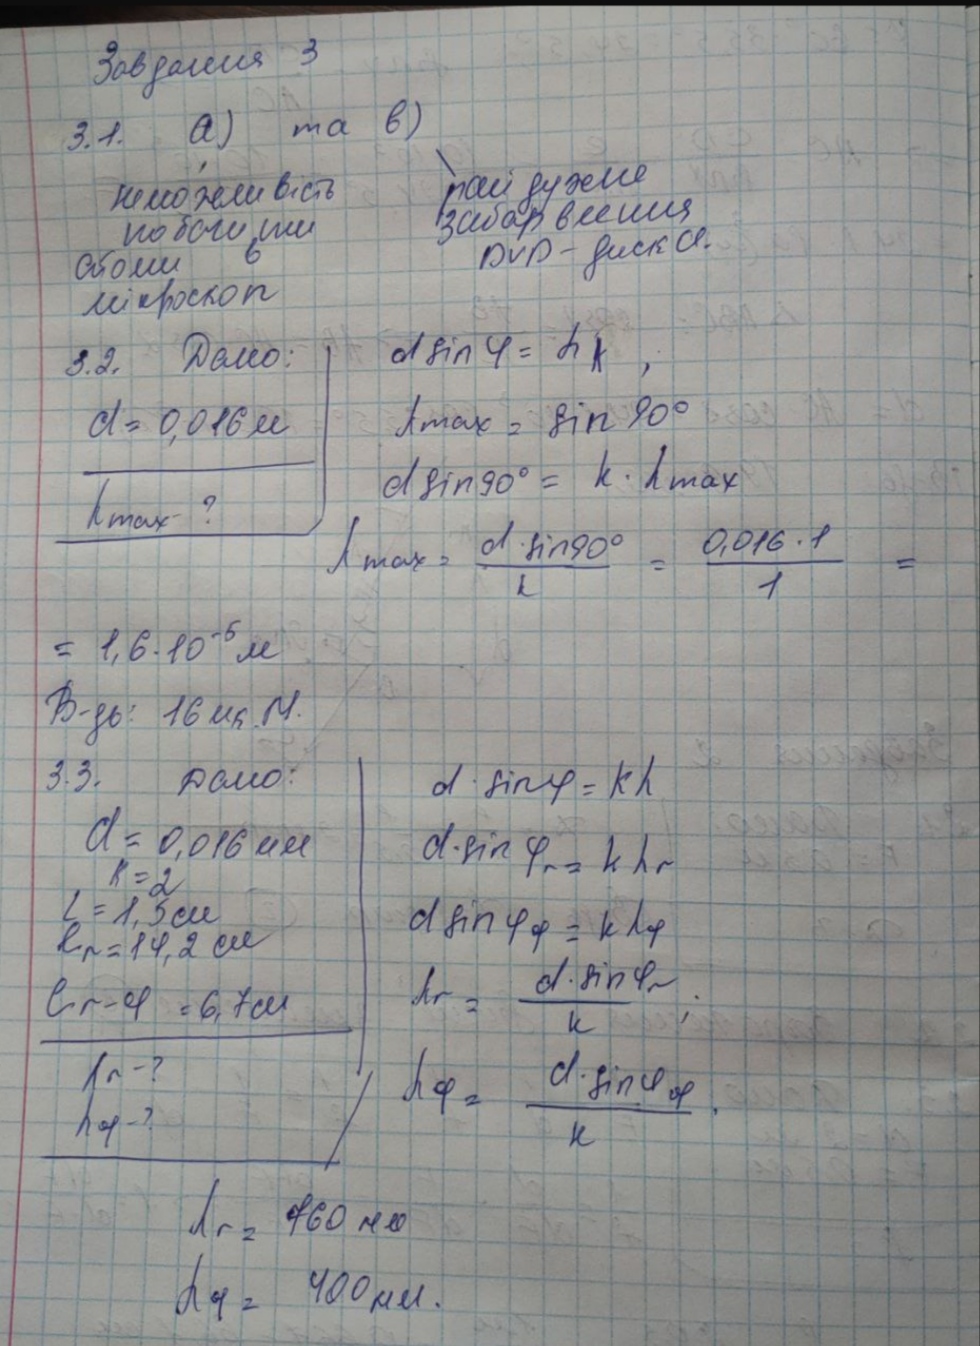 Завдання 3
3.1. а) та в)
неможливість
побачити
атоми в
мікроскоп
райдужне
забарвлення
DVD-диска.
3.2. Дано:
d = 0,016 м
λmax - ?
d sin φ = λk ;
λmax = sin 90°
d sin 90° = k · λmax
λmax = d·sin90° / k = 0,016·1 / 1 =
= 1,6·10⁻⁵ м
В-дь: 16 мк.М.
3.3. Дано:
d = 0,016 мм
K = 2
L = 1,5 см
lr = 14,2 см
lr-φ = 6,7 см
λr - ?
λφ - ?
d · sin φ = kλ
d·sin φr = k λr
d sin φφ = k λφ
λr = d·sin φr / k ;
λφ = d·sin φφ / k .
λr = 760 нм
λφ = 400 нм.